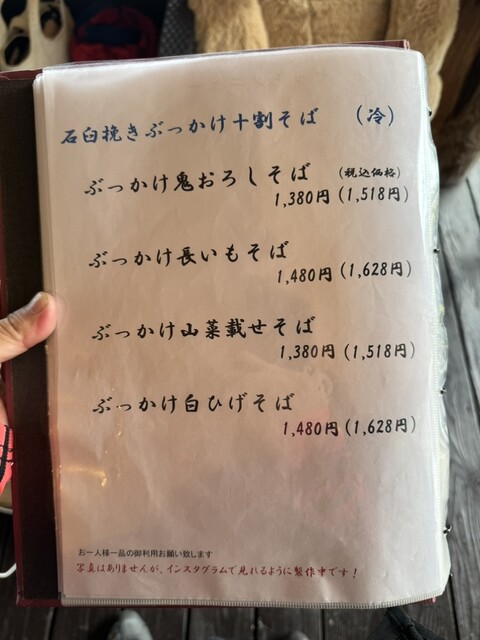 石臼挽きぶっかけ十割そば （冷）
ぶっかけ鬼おろしそば （税込価格）
1,380円（1,518円）
ぶっかけ長いもそば
1,480円（1,628円）
ぶっかけ山菜載せそば
1,380円（1,518円）
ぶっかけ白ひげそば
1,480円（1,628円）
お一人様一品の御利用お願い致します
写真はありませんが、インスタグラムで見れるように製作中です！